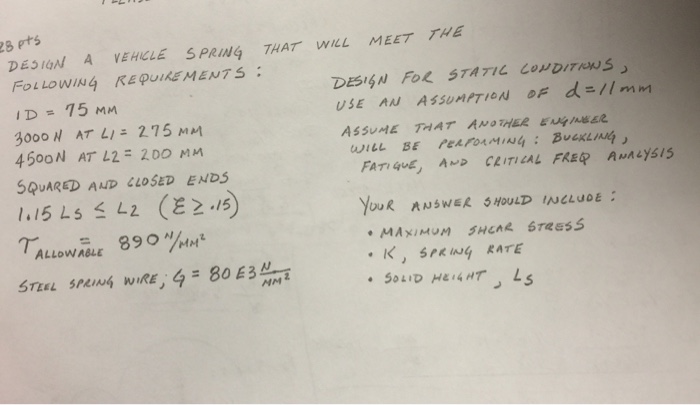 28 pts
DESIGN A VEHICLE SPRING THAT WILL MEET THE
FOLLOWING REQUIREMENTS :
ID = 75 MM
3000 N AT L1 = 275 MM
4500N AT L2 = 200 MM
SQUARED AND CLOSED ENDS
1.15 Ls ≤ L2 (ξ ≥ .15)
τ ALLOWABLE = 890 N/MM²
STEEL SPRING WIRE; G = 80 E3 N/MM²
DESIGN FOR STATIC CONDITIONS,
USE AN ASSUMPTION OF d = 11 mm
ASSUME THAT ANOTHER ENGINEER
WILL BE PERFORMING : BUCKLING,
FATIGUE, AND CRITICAL FREQ ANALYSIS
YOUR ANSWER SHOULD INCLUDE :
• MAXIMUM SHEAR STRESS
• K, SPRING RATE
• SOLID HEIGHT, LS